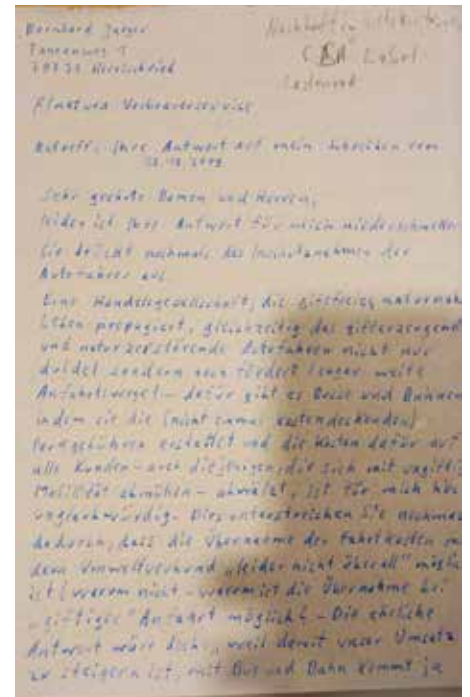 Bernhard Jäger
Tannenweg 1
Herrischried
Nachhaltig
Lastenrad
Alnatura Verbraucherservice
Betreff: Ihre Antwort auf mein Schreiben vom
Sehr geehrte Damen und Herren,
leider ist Ihre Antwort für mich niederschmetter
Sie drückt nochmals das der
Autofahrer aus.
Eine Handelsgesellschaft, die giftfreies, naturnah
Leben propagiert, gleichzeitig das gifterzeugend
und naturzerstörende Autofahren nicht nur
duldet sondern noch fördert
Anfahrtswege! – dafür gibt es Busse und Bahnen
indem sie die (nicht einmal kostendeckenden)
Parkgebühren erstattet und die Kosten dafür auf
alle Kunden – auch diejenigen, die sich mit ungiftig
Mobilität abmühen – abwälzt, ist für mich höc
unglaubwürdig. Dies unterstreichen Sie nochmal
dadurch, dass die Übernahme der Fahrtkosten m
dem Umweltverbund „leider nicht überall" möglic
ist (warum nicht – warum ist die Übernahme bei
„giftiger" Anfahrt möglich? – Die ehrliche
Antwort wäre doch „weil damit unser Umsatz
zu steigern ist, mit Bus und Bahn kommt ja